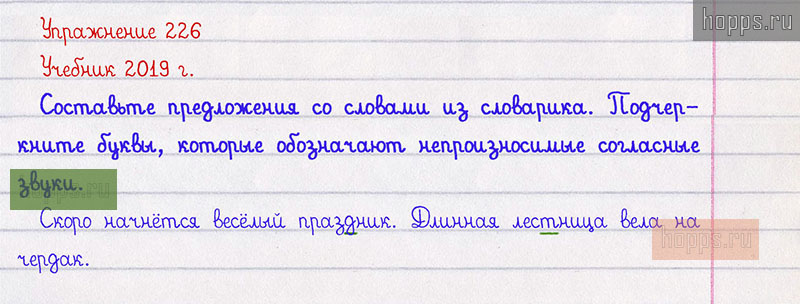 hopps.ru
Упражнение 226
Учебник 2019 г.
Составьте предложения со словами из словарика. Подчер-
кните буквы, которые обозначают непроизносимые согласные
звуки.
hopps.ru
Скоро начнётся весёлый праздник. Длинная лестница вела на
hopps.ru
чердак.